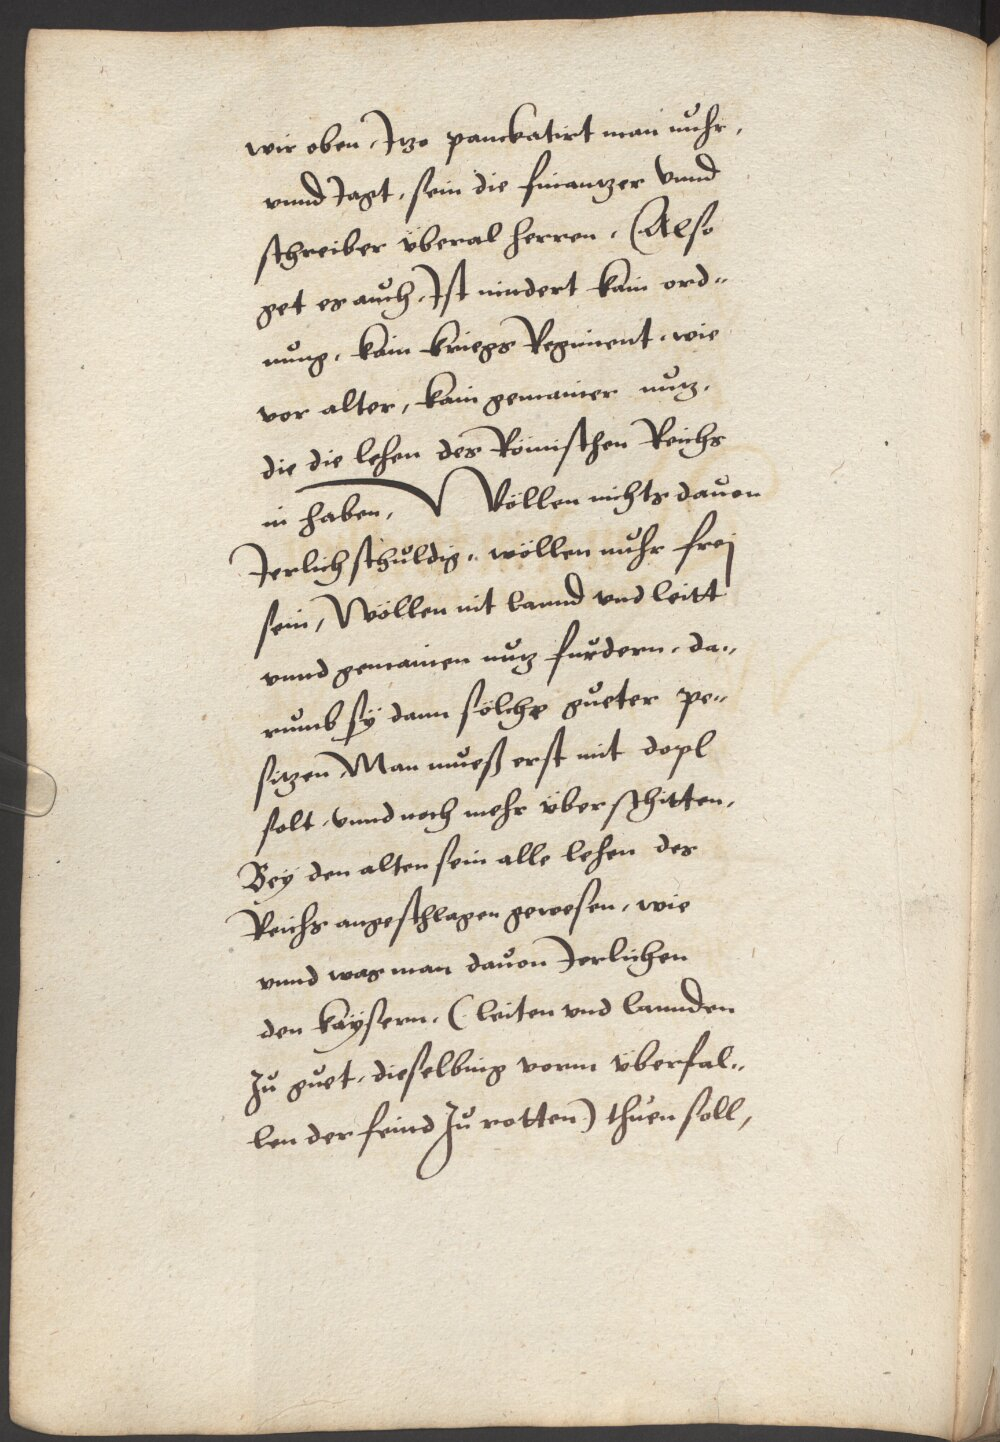 wir oben, Itzo panckatirt man nuhr,
vnnd Jagt, sein die finantzer vnnd
schreiber vberal herren. (Also
get es auch, Ist nindert kain ord„
nung, kain kriegs Regiment, wie
vor alter, kain gemainer nutz,
die die lehen des Römischen Reichs
in haben, Wöllen nichts dauon
Jerlich schuldig„ wöllen nuhr frej
sein, Wöllen nit lannd vnd leitt
vnnd gemainen nutz furdern, da„
rumb sÿ dann sölche gueter pe„
sitzen, Man mueß erst mit dopl
solt, vnnd noch mehr vberschitten,
Beÿ den alten sein alle lehen des
Reichs angeschlagen gewesen, wie
vnnd was man dauon Jerlichen
den kaÿsern, (leiten vnd lannden
zu guet, dieselbing vorm vberfal„
len der feind zu rotten) thuen soll,